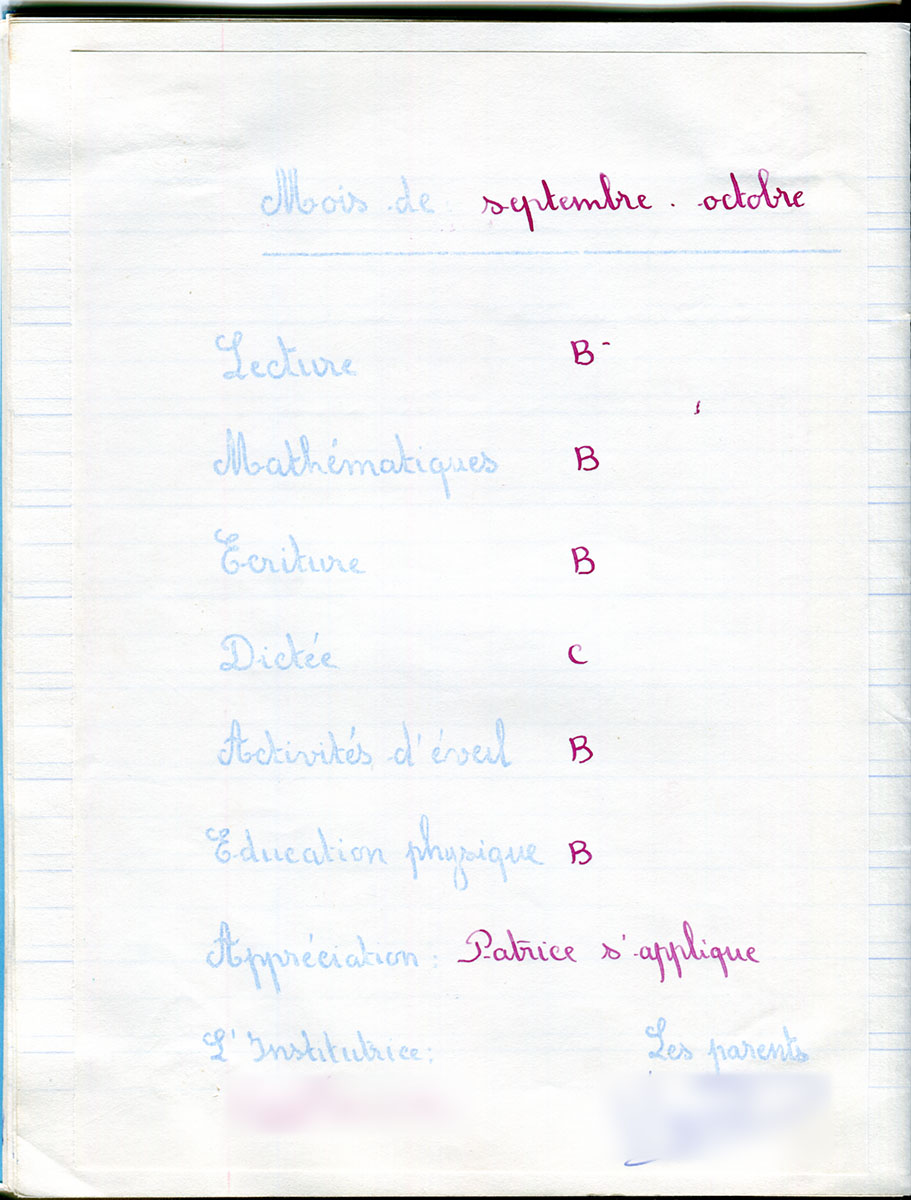 Mois de septembre. octobre
Lecture B-
Mathématiques B
Ecriture B
Dictée C
Activités d'éveil B
Education physique B
Appréciation : Patrice s'applique
L'Institutrice: Les parents